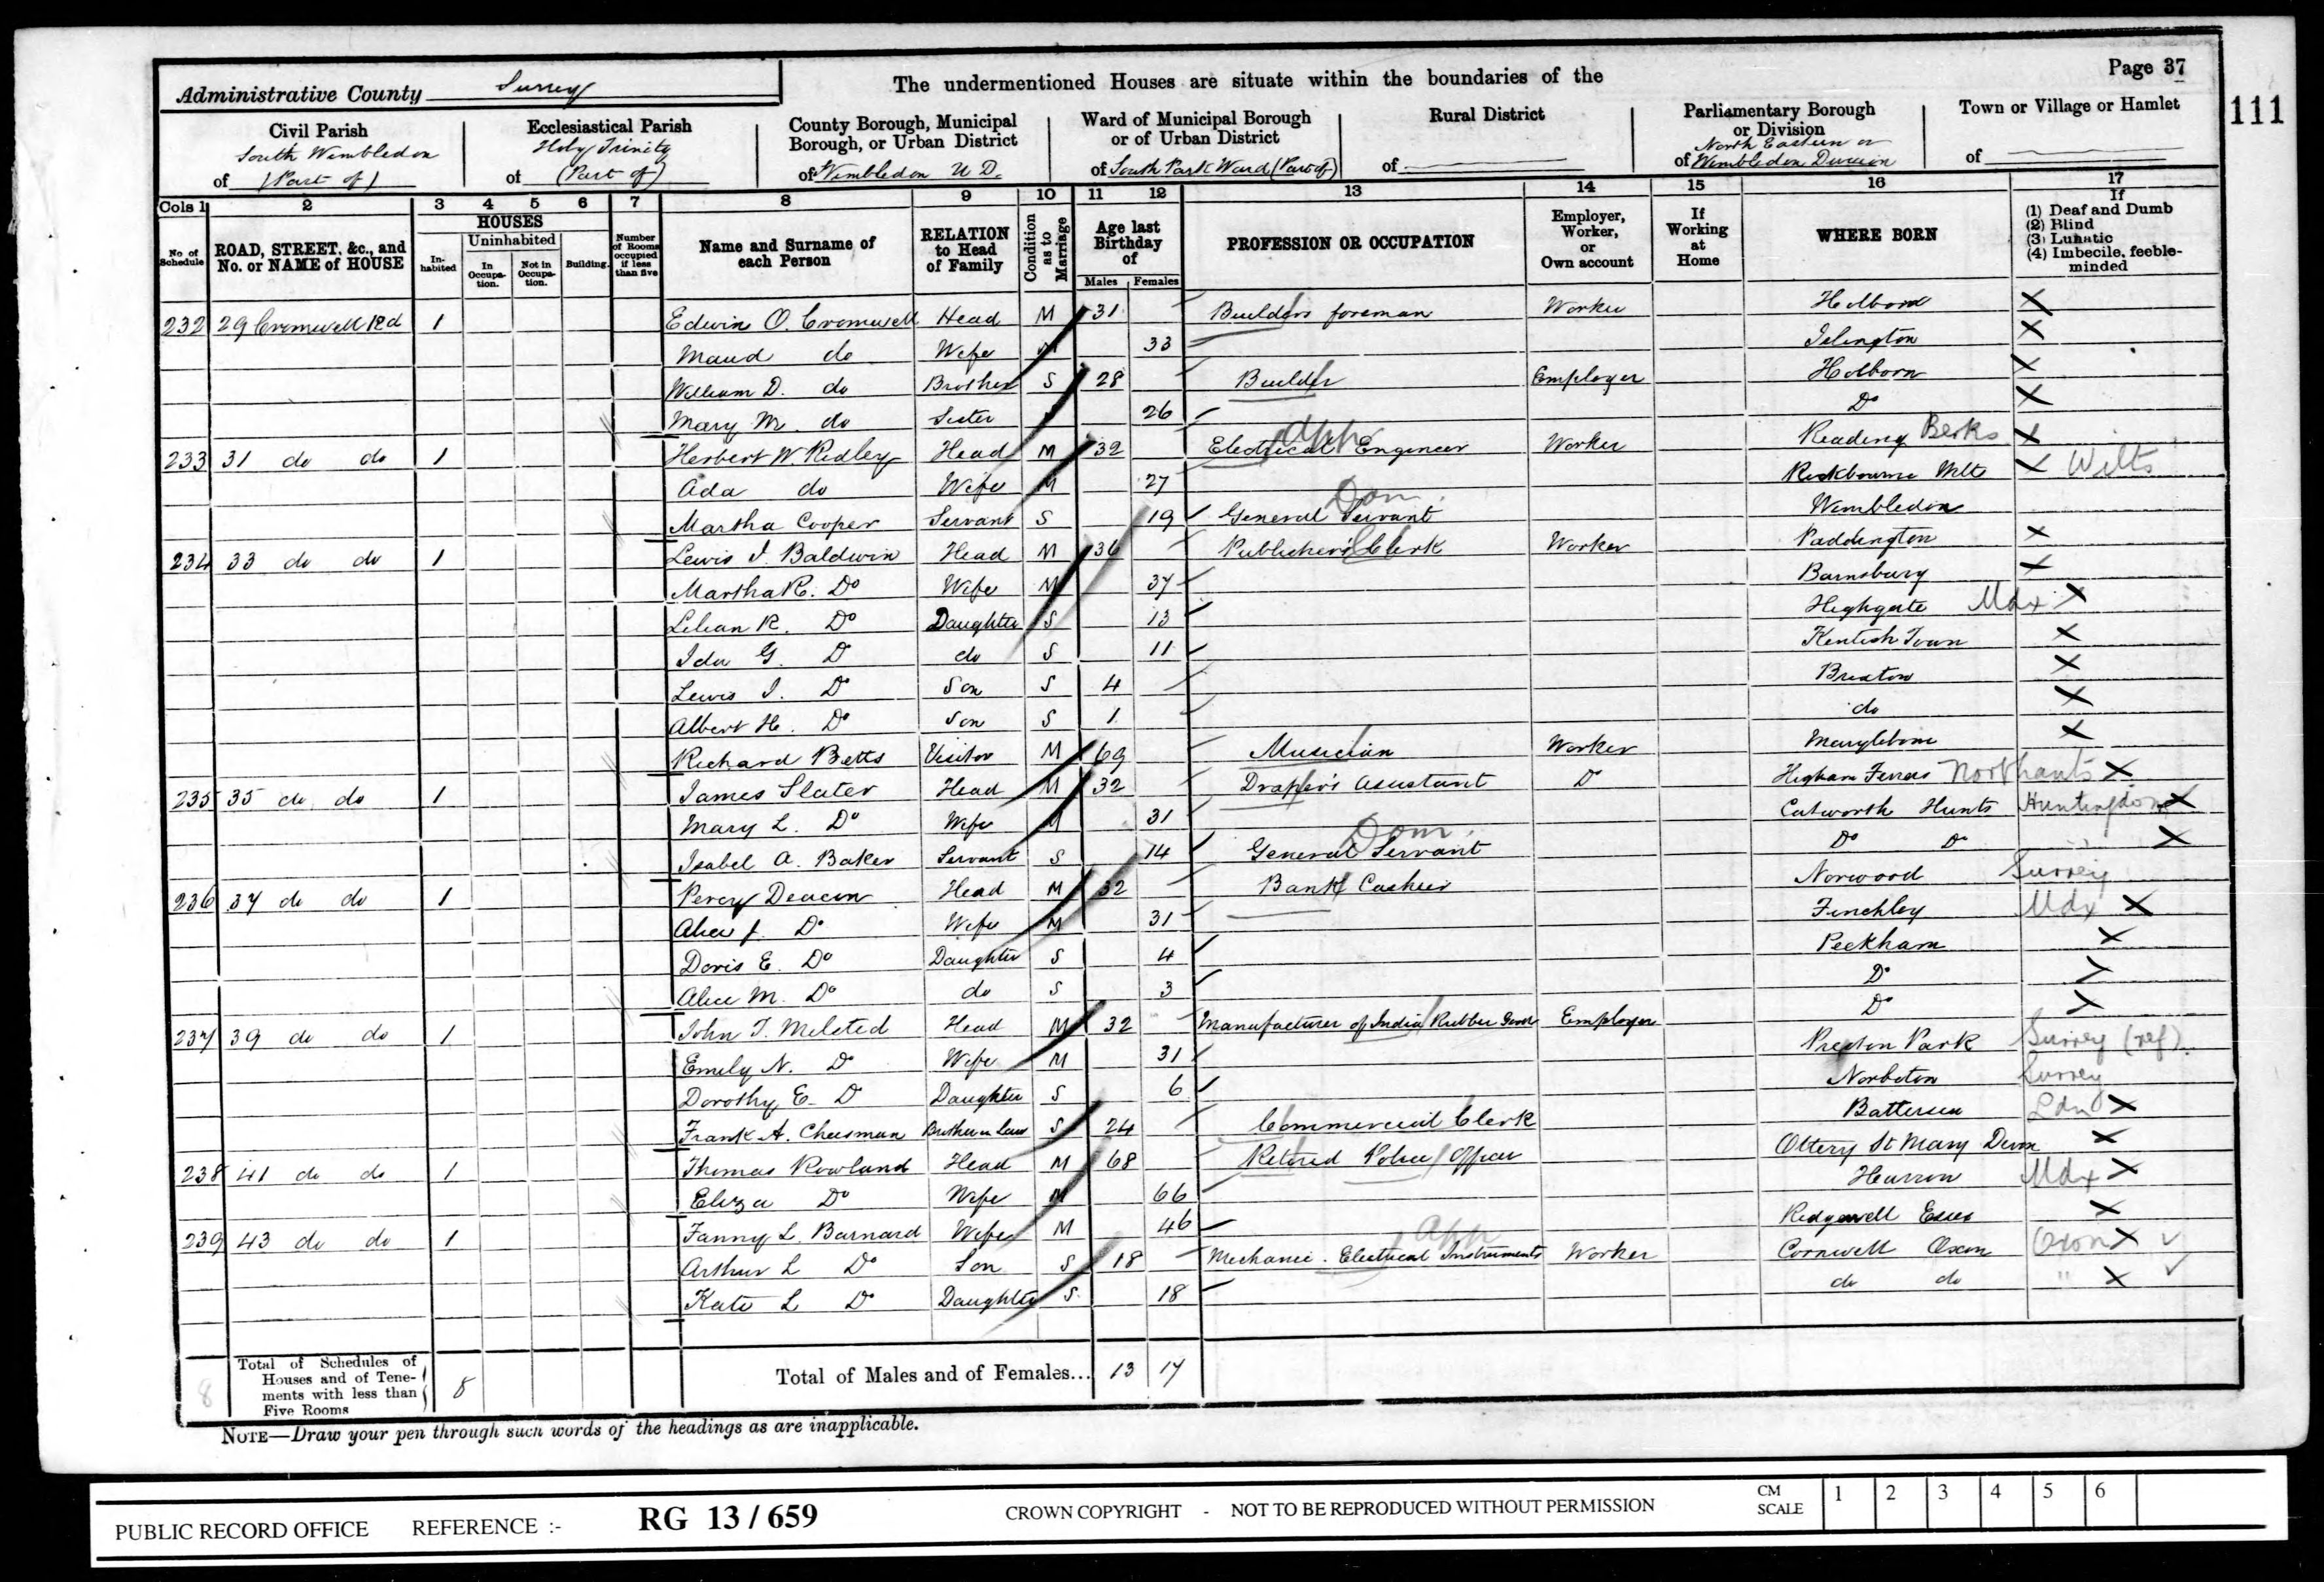 Page 37
111
Administrative County Surrey
The undermentioned Houses are situate within the boundaries of the
Civil Parish of South Wimbledon (Part of)
Ecclesiastical Parish of Holy Trinity (Part of)
County Borough, Municipal Borough, or Urban District of Wimbledon U D.
Ward of Municipal Borough or of Urban District of South Park Ward (Part of)
Rural District of
Parliamentary Borough or Division of North Eastern or Wimbledon Division
Town or Village or Hamlet of
Cols 1 2 3 4 5 6 7 8 9 10 11 12 13 14 15 16 17
No of Schedule
ROAD, STREET, &c., and No. or NAME of HOUSE
HOUSES
Inhabited
Uninhabited
In Occupation.
Not in Occupation.
Building.
Number of Rooms occupied if less than five
Name and Surname of each Person
RELATION to Head of Family
Condition as to Marriage
Age last Birthday of
Males Females
PROFESSION OR OCCUPATION
Employer, Worker, or Own account
If Working at Home
WHERE BORN
If
(1) Deaf and Dumb
(2) Blind
(3) Lunatic
(4) Imbecile, feeble-minded
232 29 Cromwell Rd 1 Edwin O. Cromwell Head M 31 Builders foreman Worker Holborn
Maud do Wife M 33 Islington
William D. do Brother S 28 Builder Employer Holborn
Mary M. do Sister 26 Do
233 31 do do 1 Herbert W. Ridley Head M 32 Electrical Engineer app Worker Reading Berks
Ada do Wife M 27 Wilts Wilts
Martha Cooper Servant S 19 General Servant Dom. Wimbledon
234 33 do do 1 Lewis J. Baldwin Head M 36 Publisher's Clerk Worker Paddington
Martha R. Do Wife M 37 Barnsbury
Lilian R. Do Daughter S 13 Highgate Mdx
Ida G. Do do S 11 Kentish Town
Lewis J. Do Son S 4 Brixton
Albert H. Do Son S 1 do
Richard Betts Visitor M 69 Musician Worker Marylebone
235 35 do do 1 James Slater Head M 32 Draper's Assistant Do Higham Ferrers Northants
Mary L. Do Wife M 31 Catworth Hunts Huntingdon
Isabel A. Baker Servant S 14 General Servant Dom. Do Do
236 37 do do 1 Percy Deacon Head M 32 Bank Cashier Norwood Surrey
Alice J. Do Wife M 31 Finchley Mdx
Doris E. Do Daughter S 4 Peckham
Alice M. Do do S 3 Do
237 39 do do 1 John T. Melsted Head M 32 Manufacturer of India Rubber Goods Employer Do
Emily N. Do Wife M 31 Preston Park Surrey (ref)
Dorothy E. Do Daughter S 6 Norbiton Surrey
Frank A. Cheesman Brother in Law S 24 Commercial Clerk Battersea Ldn
238 41 do do 1 Thomas Rowland Head M 68 Retired Police Officer Ottery St Mary Devon
Eliza Do Wife M 66 Harrow Mdx
239 43 do do 1 Fanny L. Barnard Wife M 46 Ridgewell Essex
Arthur L Do Son S 18 Mechanic. Electrical Instruments app Worker Cornwell Oxon Oxon
Kate L Do Daughter S 18 do do "
8
Total of Schedules of Houses and of Tenements with less than Five Rooms 8
Total of Males and of Females... 13 17
NOTE—Draw your pen through such words of the headings as are inapplicable.
PUBLIC RECORD OFFICE REFERENCE :- RG 13 / 659 CROWN COPYRIGHT - NOT TO BE REPRODUCED WITHOUT PERMISSION
CM SCALE 1 2 3 4 5 6